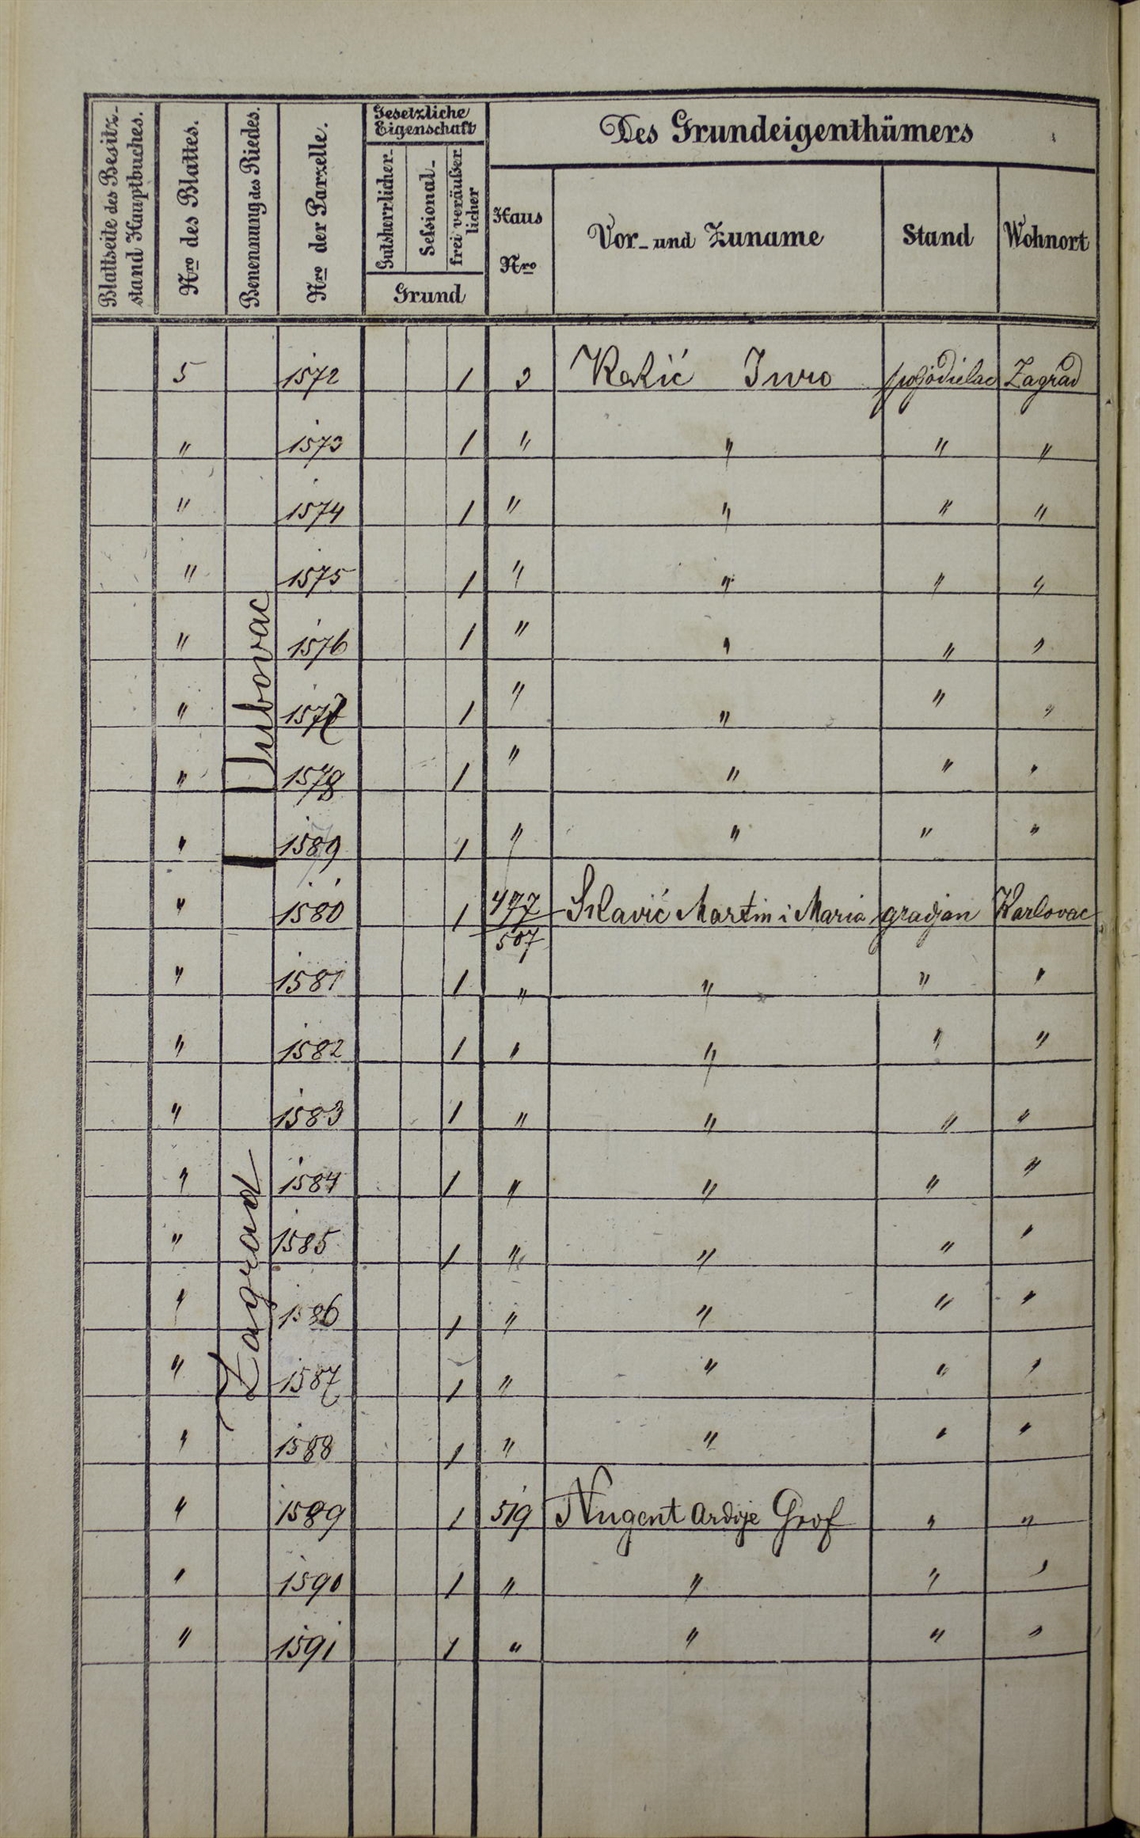 Blattseite des Besitz-
stand Hauptbuches.
Nro des Blattes.
Benennung des Riedes.
Nro der Parzelle.
Gesetzliche
Eigenschaft
Gutsherrlicher-
Sessional-
frei veräußer
licher
Grund
Des Grundeigenthümers
Haus
Nro
Vor- und Zuname
Stand
Wohnort
5 1572 1 Ivro Zagrad
" 1573 1 " " " "
" 1574 1 " " " "
" 1575 1 " " " "
" 1576 1 " " " "
" 1577 1 " " " "
" 1578 1 " " " "
" 1589 1 " " " "
Dubovac
" 1580 1 477/507 Martin i Maria gradjan Karlovac
" 1581 1 " " " "
" 1582 1 " " " "
" 1583 1 " " " "
" 1584 1 " " " "
" 1585 1 " " " "
" 1586 1 " " " "
" 1587 1 " " " "
" 1588 1 " " " "
Zagrad
" 1589 1 519 Nugent Grof " "
" 1590 1 " " " "
" 1591 1 " " " "